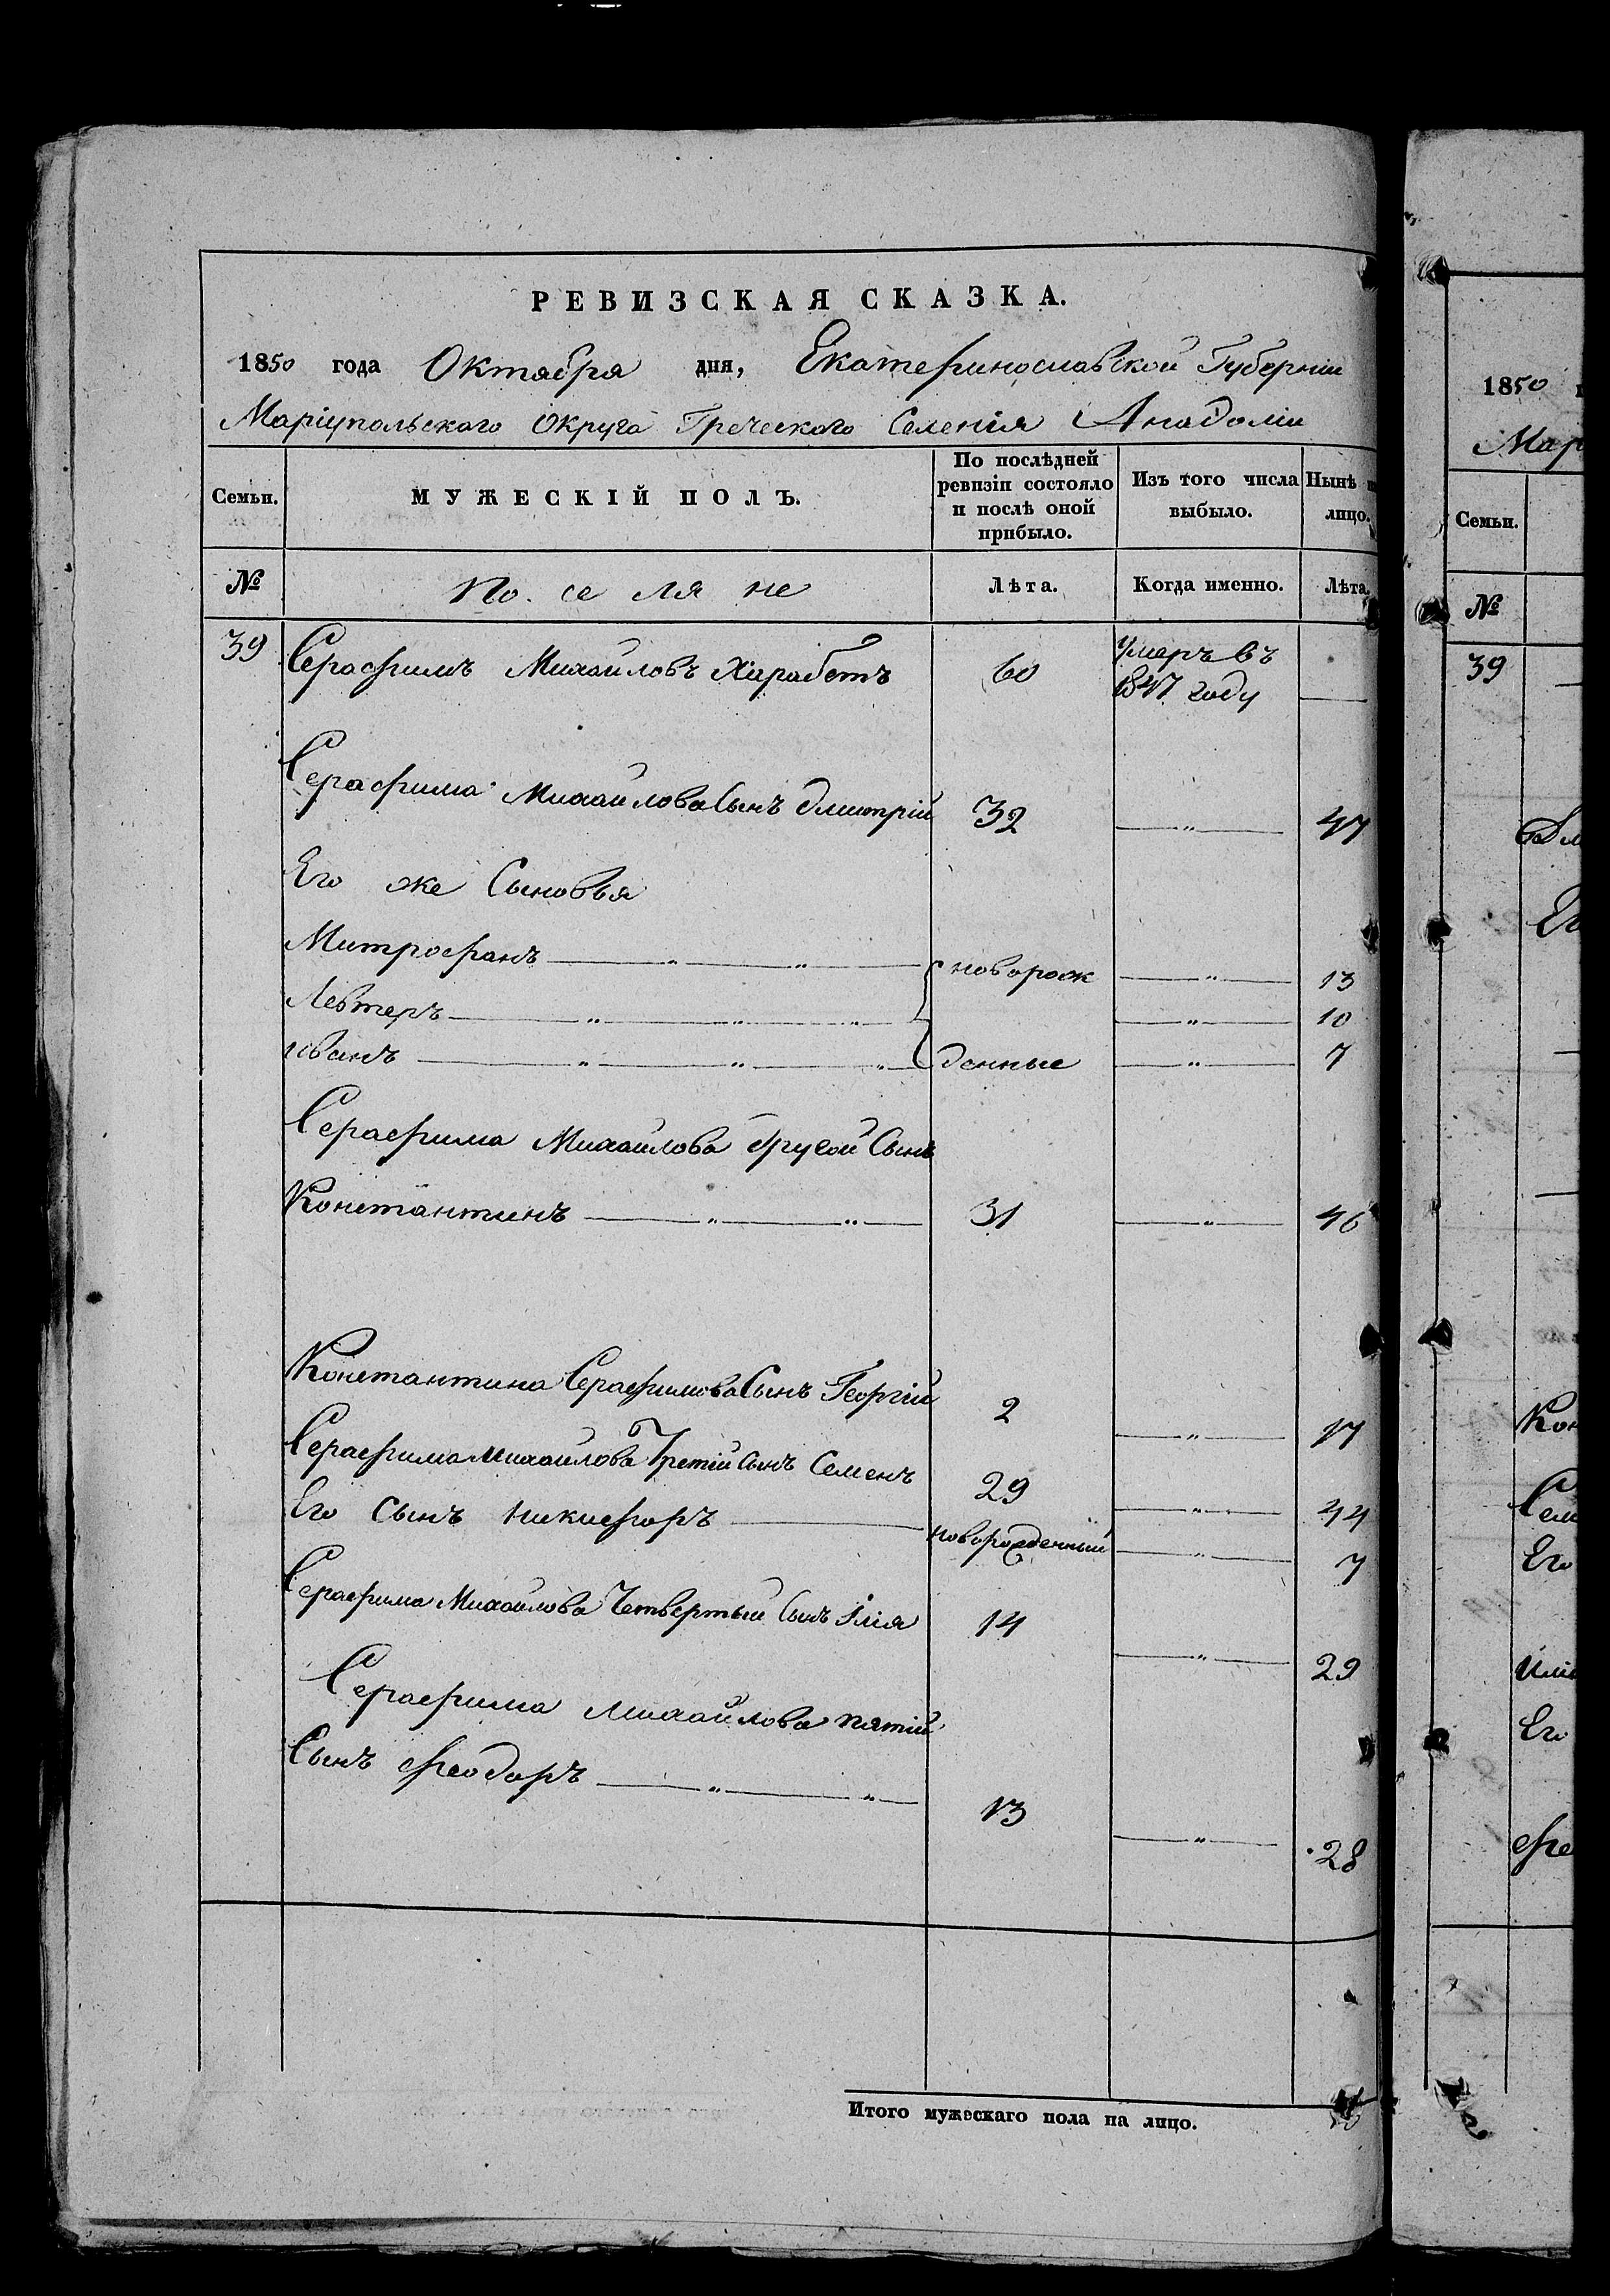 РЕВИЗСКАЯ СКАЗКА.
1850 года Октября дня, Екатеринославской Губерніи
Маріупольскаго Округа Греческого Селенія Анадоліи
Семьи. МУЖЕСКІЙ ПОЛЪ. По послѣдней ревизіи состояло и послѣ оной прибыло. Изъ того числа выбыло. Нынѣ лицо.
№ По се ля не Лѣта. Когда именно. Лѣта.
39 Серафимъ Михайловъ Харабетъ 60 Умеръ въ 1847 году
Серафима Михайлова Сынъ Дмитрій 32 " 47
Его же Сыновья
Митрофанъ " " новорож " 13
Левтеръ " " " " 10
Иванъ " " " денные " 7
Серафима Михайлова другой Сынъ
Константинъ " " 31 " 46
Константина Серафимова Сынъ Георгій 2 " 17
Серафима Михайлова Третій Сынъ Семенъ 29 " 44
Его Сынъ Никифоръ новорожденный " 7
Серафима Михайлова Четвертый Сынъ Илія 14 " 29
Серафима Михайлова пятій
Сынъ Феодоръ " " 13 " 28
Итого мужескаго пола на лицо.
1850
Мар
Семьи.
№
39
Его
Кон
Сем
Его
Илі
Его
Фео